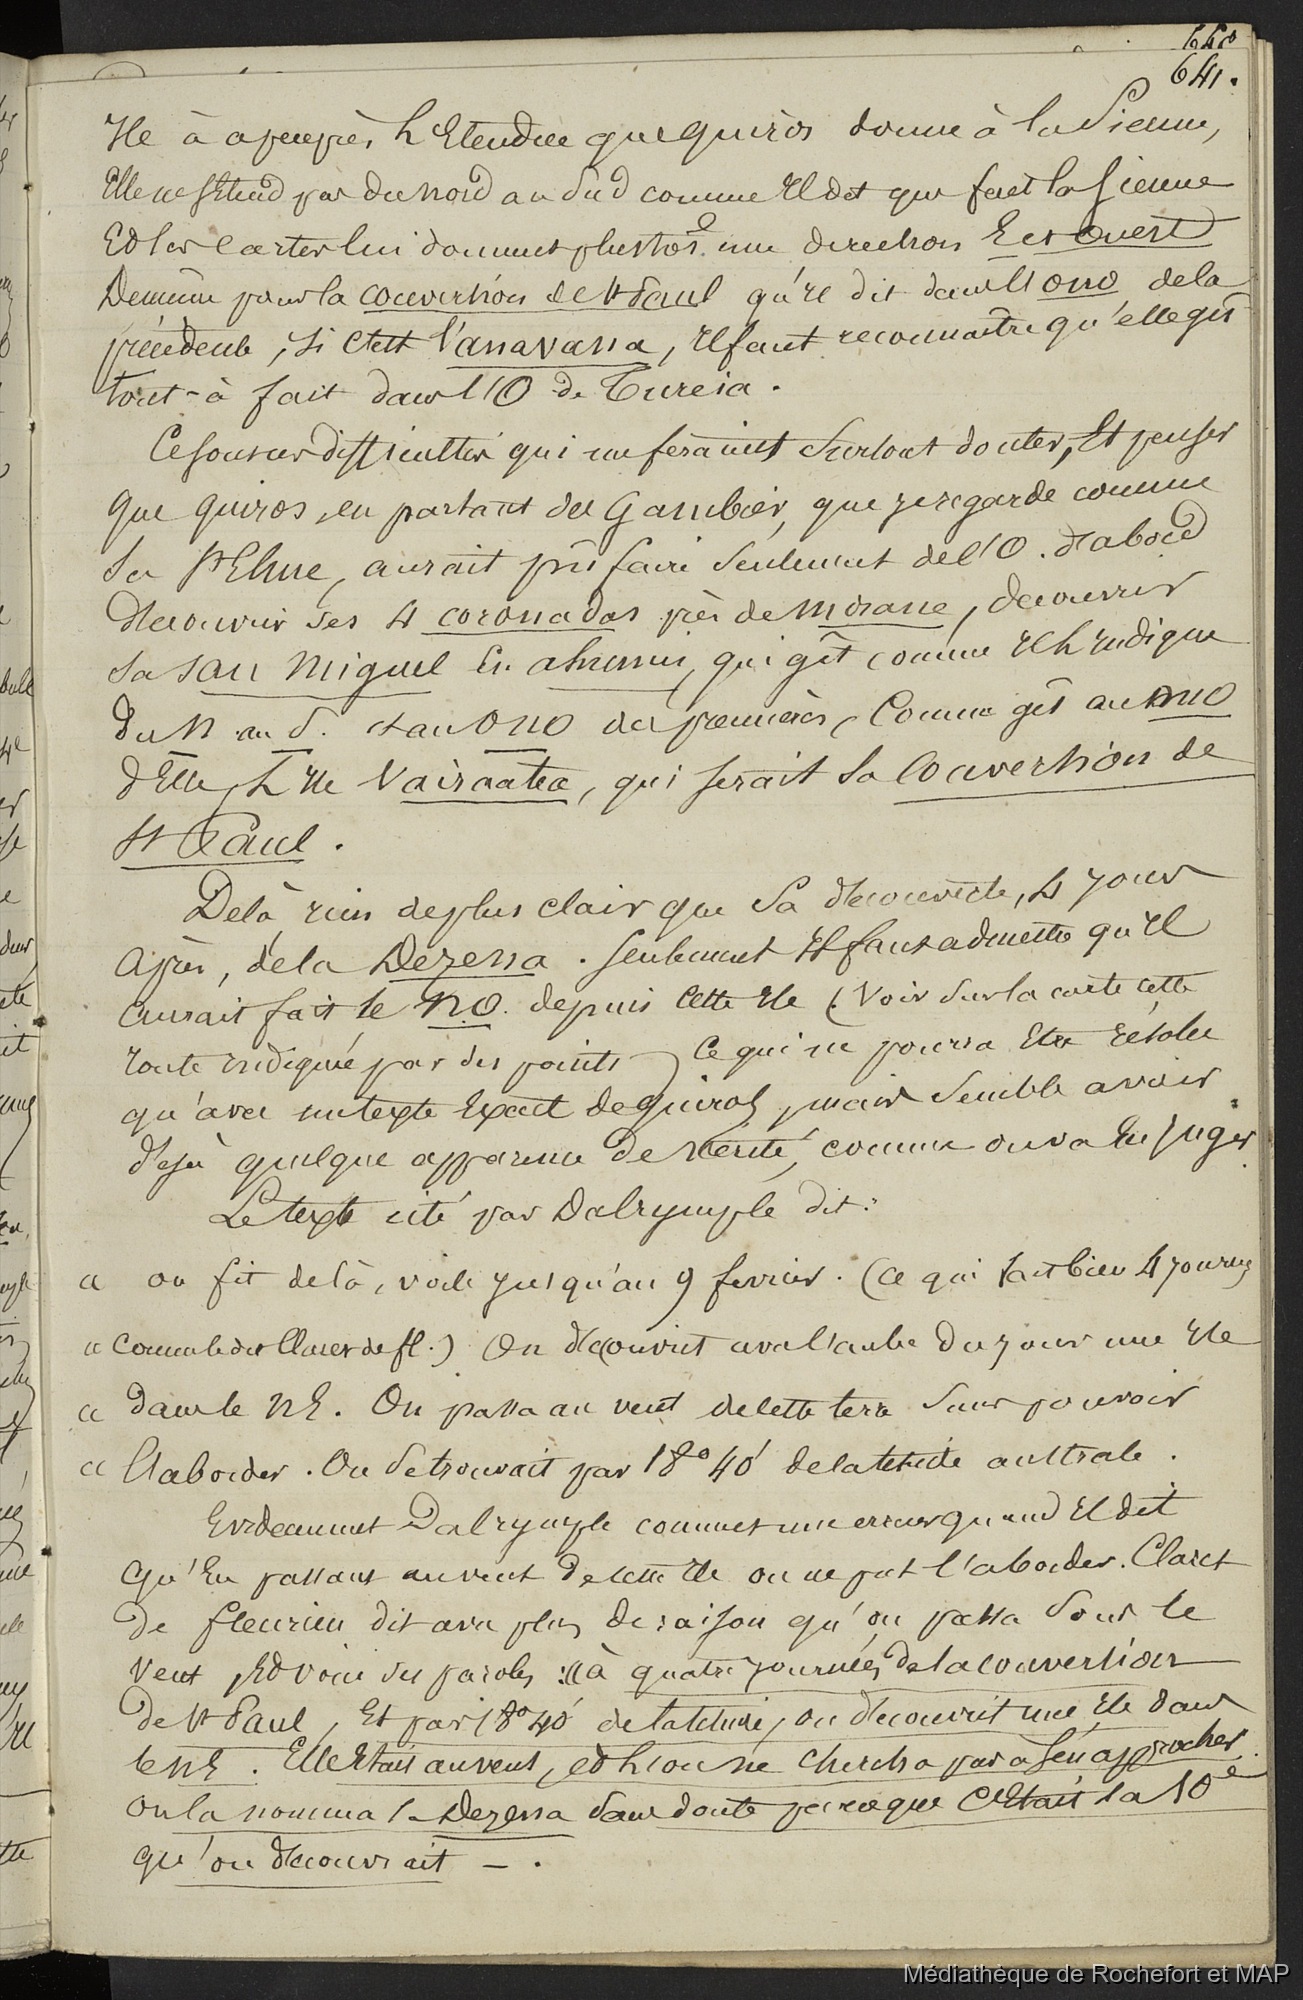 640
641.
Ile à apeuprès l'Etendue que quiròs donne à la Sienne,
Elle ne s'Etend pas du nord au Sud comme Il dit que fait la Sienne
Et les cartes lui donnent plustos une direction Est Ouest
De même pour la convertion de St Paul qu'il dit dans l'ONO de la
précédente, si c'est Vanavana, Il faut reconnaitre qu'elle git
tout-à fait dans l'O de Tureia.
Ce sont ces difficultés qui me feraient Surtout douter, Et penser
que quiros, en partant des Gambier, que je regarde comme
Sa St Elme, aurait pu faire Seulement de l'O. d'abord
découvrir ses 4 coronadas près de Morane, découvrir
Sa San Miguel En ahunui, qui gît comme Il l'Indique
du N au S. et au ONO des premières, Comme gît au NNO
d'Elle, L'Ile Vairaatea, qui serait Sa Convertion de
St Paul.
De là, rien de plus clair que Sa découverte, 4 jours
Après, de la Dezena. Seulement Il faut admettre qu'Il
aurait fait le NO. depuis Cette Ile (Voir Sur la carte cette
route indiquée par des points) Ce qui ne pourra Etre résolu
qu'avec un texte Exact de quiros, mais Semble avoir
déjà quelque apparence de Vérité, comme on va En juger.
Le texte cité par Dalrymple dit:
« on fit de là, voile jusqu'au 9 fevrier. (Ce qui fait bien 4 journées
« Comme le dit Claret de fl.) On découvrit avec l'aube du jour une Ile
« dans le NE. On passa au vent de cette terre Sans pouvoir
« l'aborder. On se trouvait par 18° 40' de latitude australe.
Evidemment Dalrymple commet une erreur quand Il dit
Qu'En passant au vent de cette Ile on ne put l'aborder. Claret
de fleurieu dit avec plus de raison qu'on passa Sous le
vent, Et voici ses paroles: « à quatre journées de la convertion
de St Paul, Et par 18° 40' de latitude, on découvrit une Ile dans
le NE. Elle Etait au vent, et l'on ne chercha pas a s'en approcher.
On la nomma la Dezena Sans doute parceque C'Etait la 10e
qu'on découvrait — .
Médiathèque de Rochefort et MAP